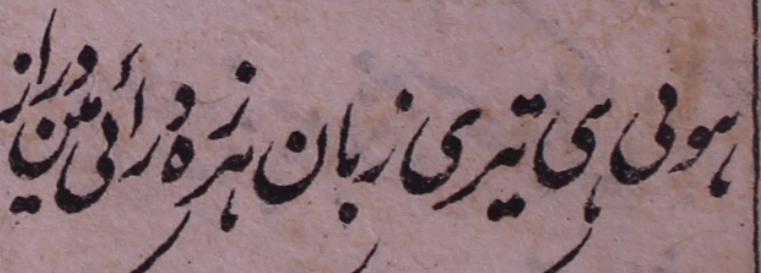 ہوئی ہی تیری زبان ہرزہ درائی مین دراز